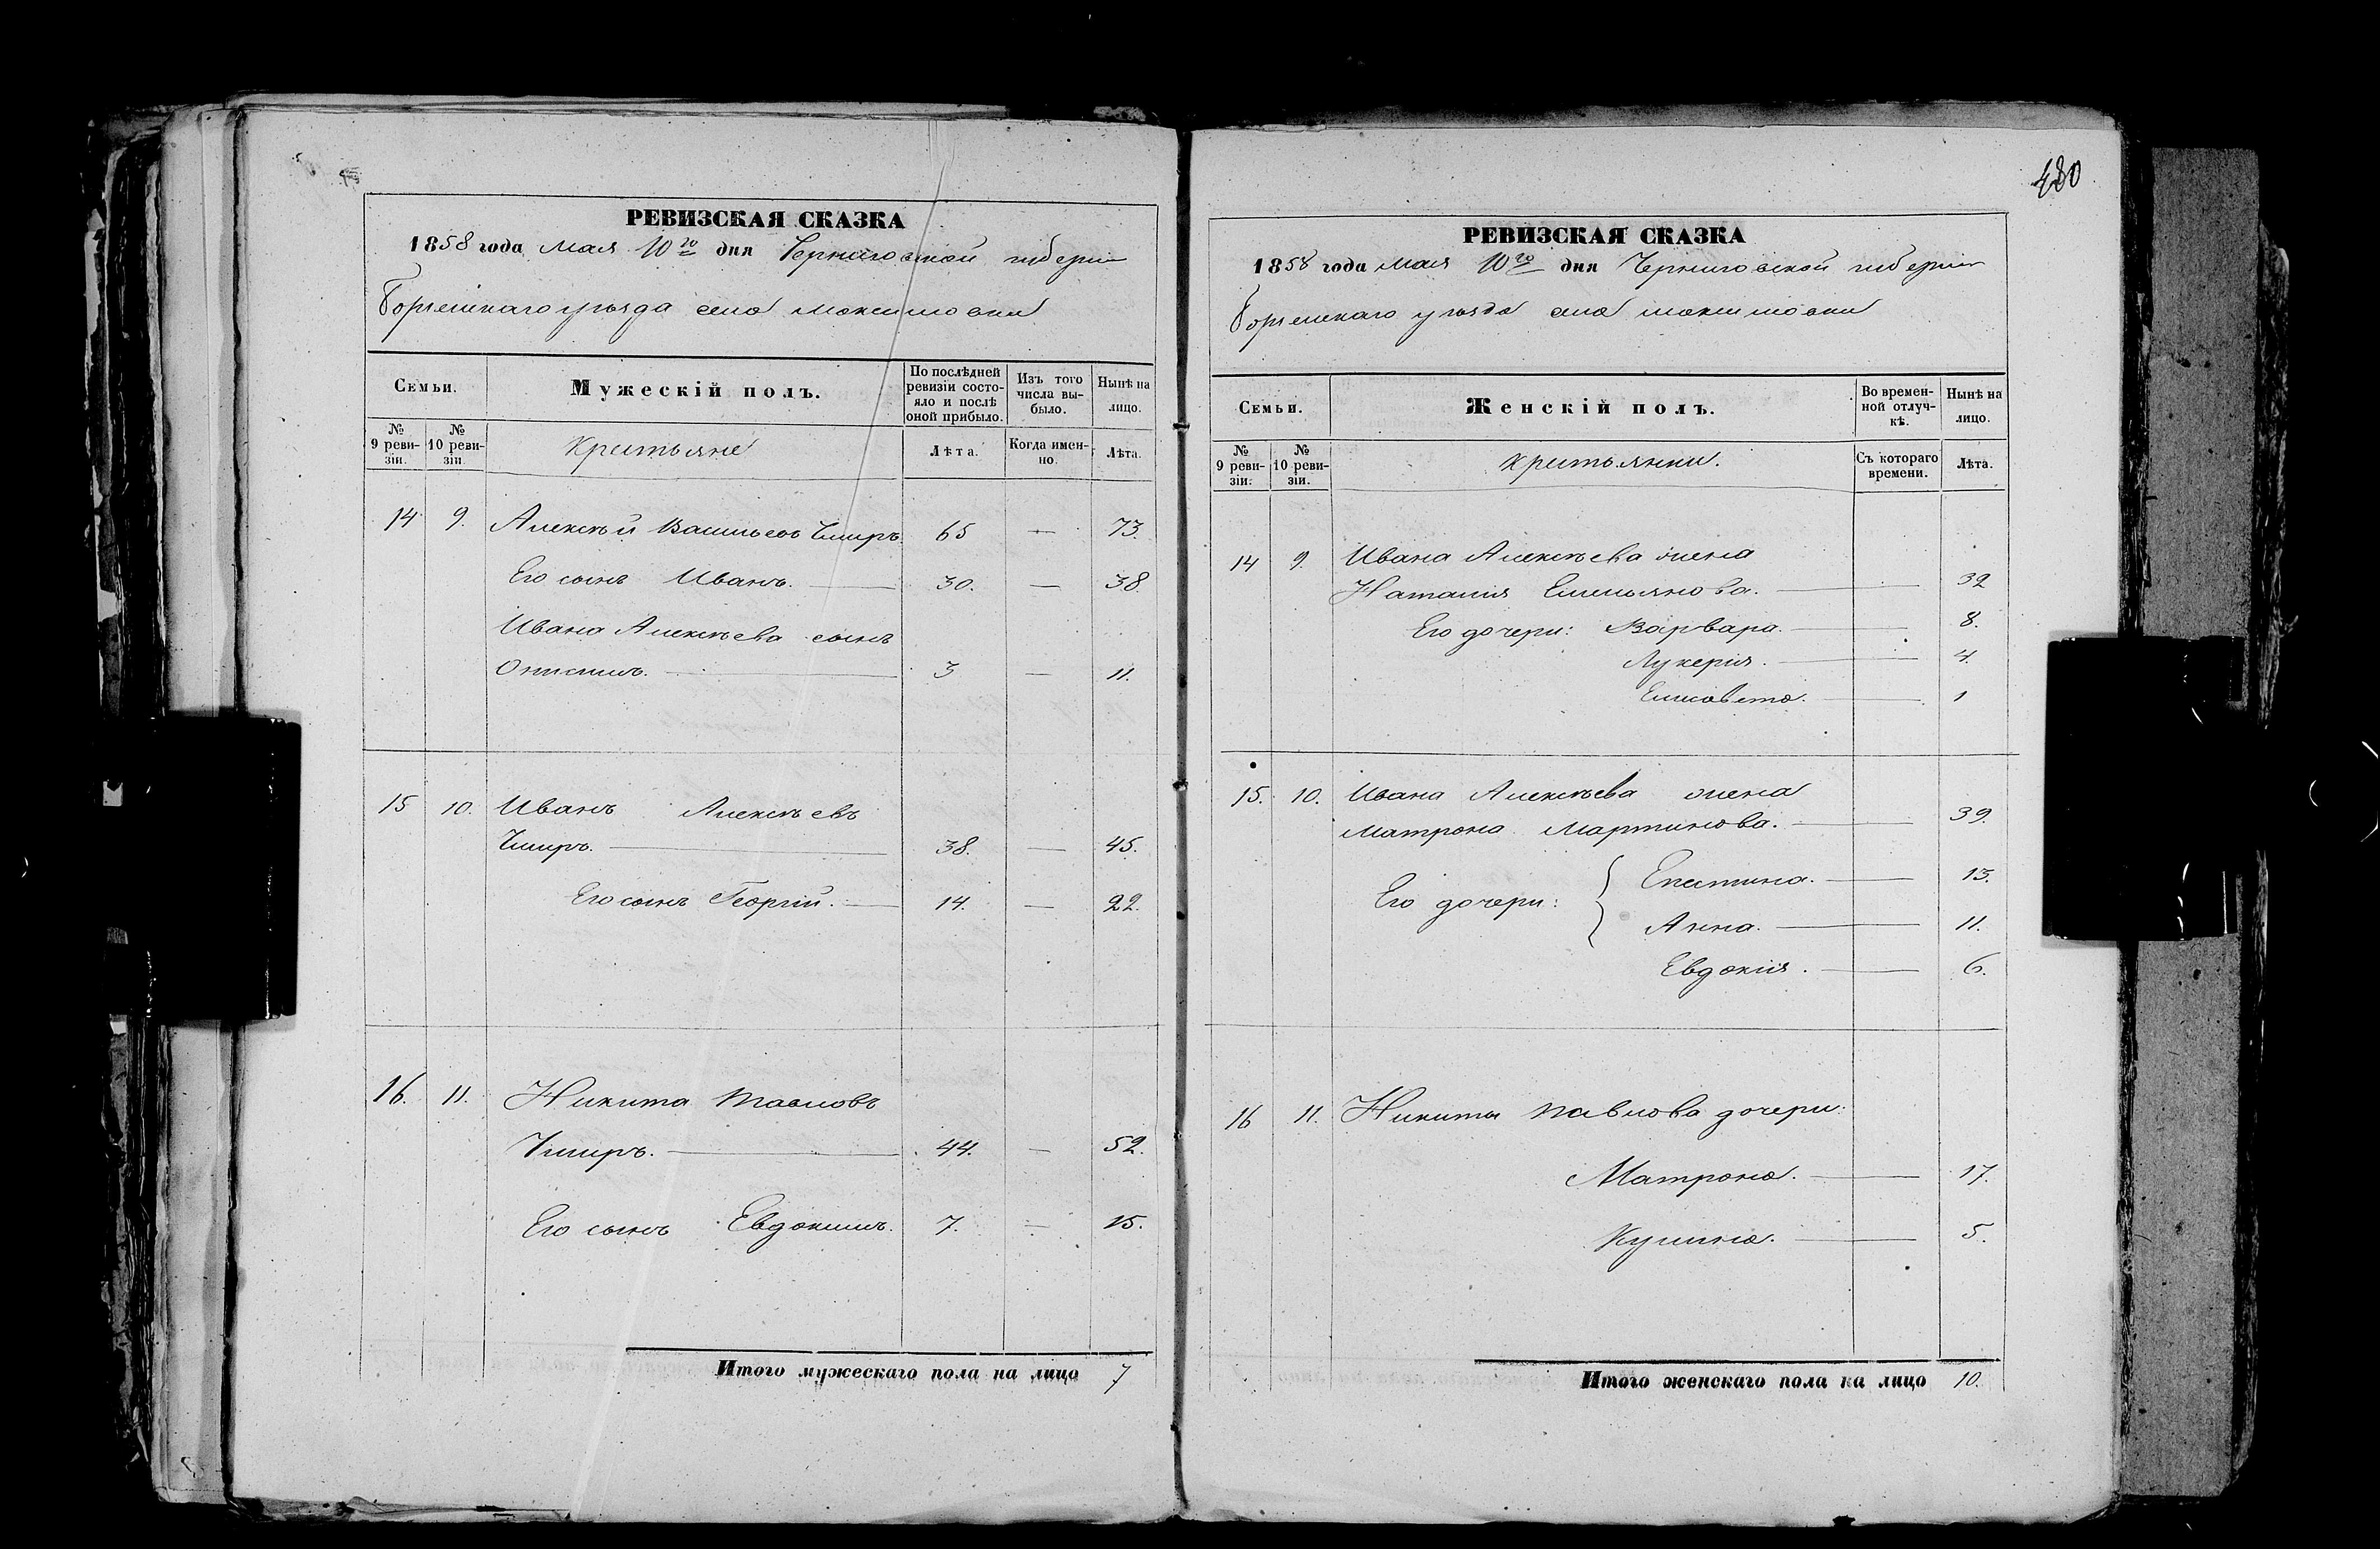 РЕВИЗСКАЯ СКАЗКА
1858 года Мая 10го дня Черниговской губерніи
Борзенскаго уѣзда села Максимовки
Семьи.
Мужескій полъ.
По послѣдней ревизіи состояло и послѣ оной прибыло.
Изъ того числа выбыло.
Нынѣ на лицо.
№ 9 ревизіи.
№ 10 ревизіи.
Крестьяне
Лѣта.
Когда именно.
Лѣта.
14 9. Алексѣй Васильевъ Чмиръ. 65 — 73.
Его сынъ Иванъ. — 30. — 38
Ивана Алексѣева сынъ
Онисимъ. — 3 — 11.
15 10. Иванъ Алексѣевъ
Чмиръ. — 38. — 45.
Его сынъ Георгій. — 14. — 22.
16. 11. Никита Павловъ
Чмиръ. — 44. — 52.
Его сынъ Евдокимъ. 7. — 15.
Итого мужескаго пола на лицо 7
480
РЕВИЗСКАЯ СКАЗКА
1858 года Мая 10го дня Черниговской губерніи
Борзенскаго уѣзда села Максимовки
Семьи.
Женскій полъ.
Во временной отлучкѣ.
Нынѣ на лицо.
№ 9 ревизіи.
№ 10 ревизіи.
Крестьянки.
Съ котораго времени.
Лѣта.
14 9. Ивана Алексѣева жена
Наталия Емельянова. — 32
Его дочери: Варвара. — 8.
Лукерія. — 4.
Елисавета. — 1
15. 10. Ивана Алексѣева жена
Матрона Мартинова. — 39.
Его дочери: { Епестина. — 13.
Анна. — 11.
Евдокія. — 6.
16 11. Никиты Павлова дочери:
Матрона. — 17.
Кулина. — 5.
Итого женскаго пола на лицо 10.